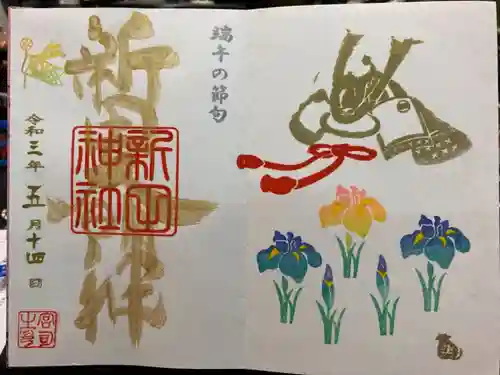 端午の節句
新田神社
新田
神社
令和三年五月十四日
宮司
之印